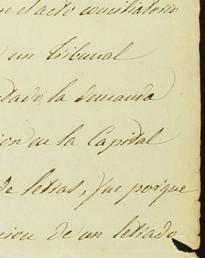 el acto conciliatorio
un tribunal
la demanda
en la Capital
de letras, fue porque
de un letrado